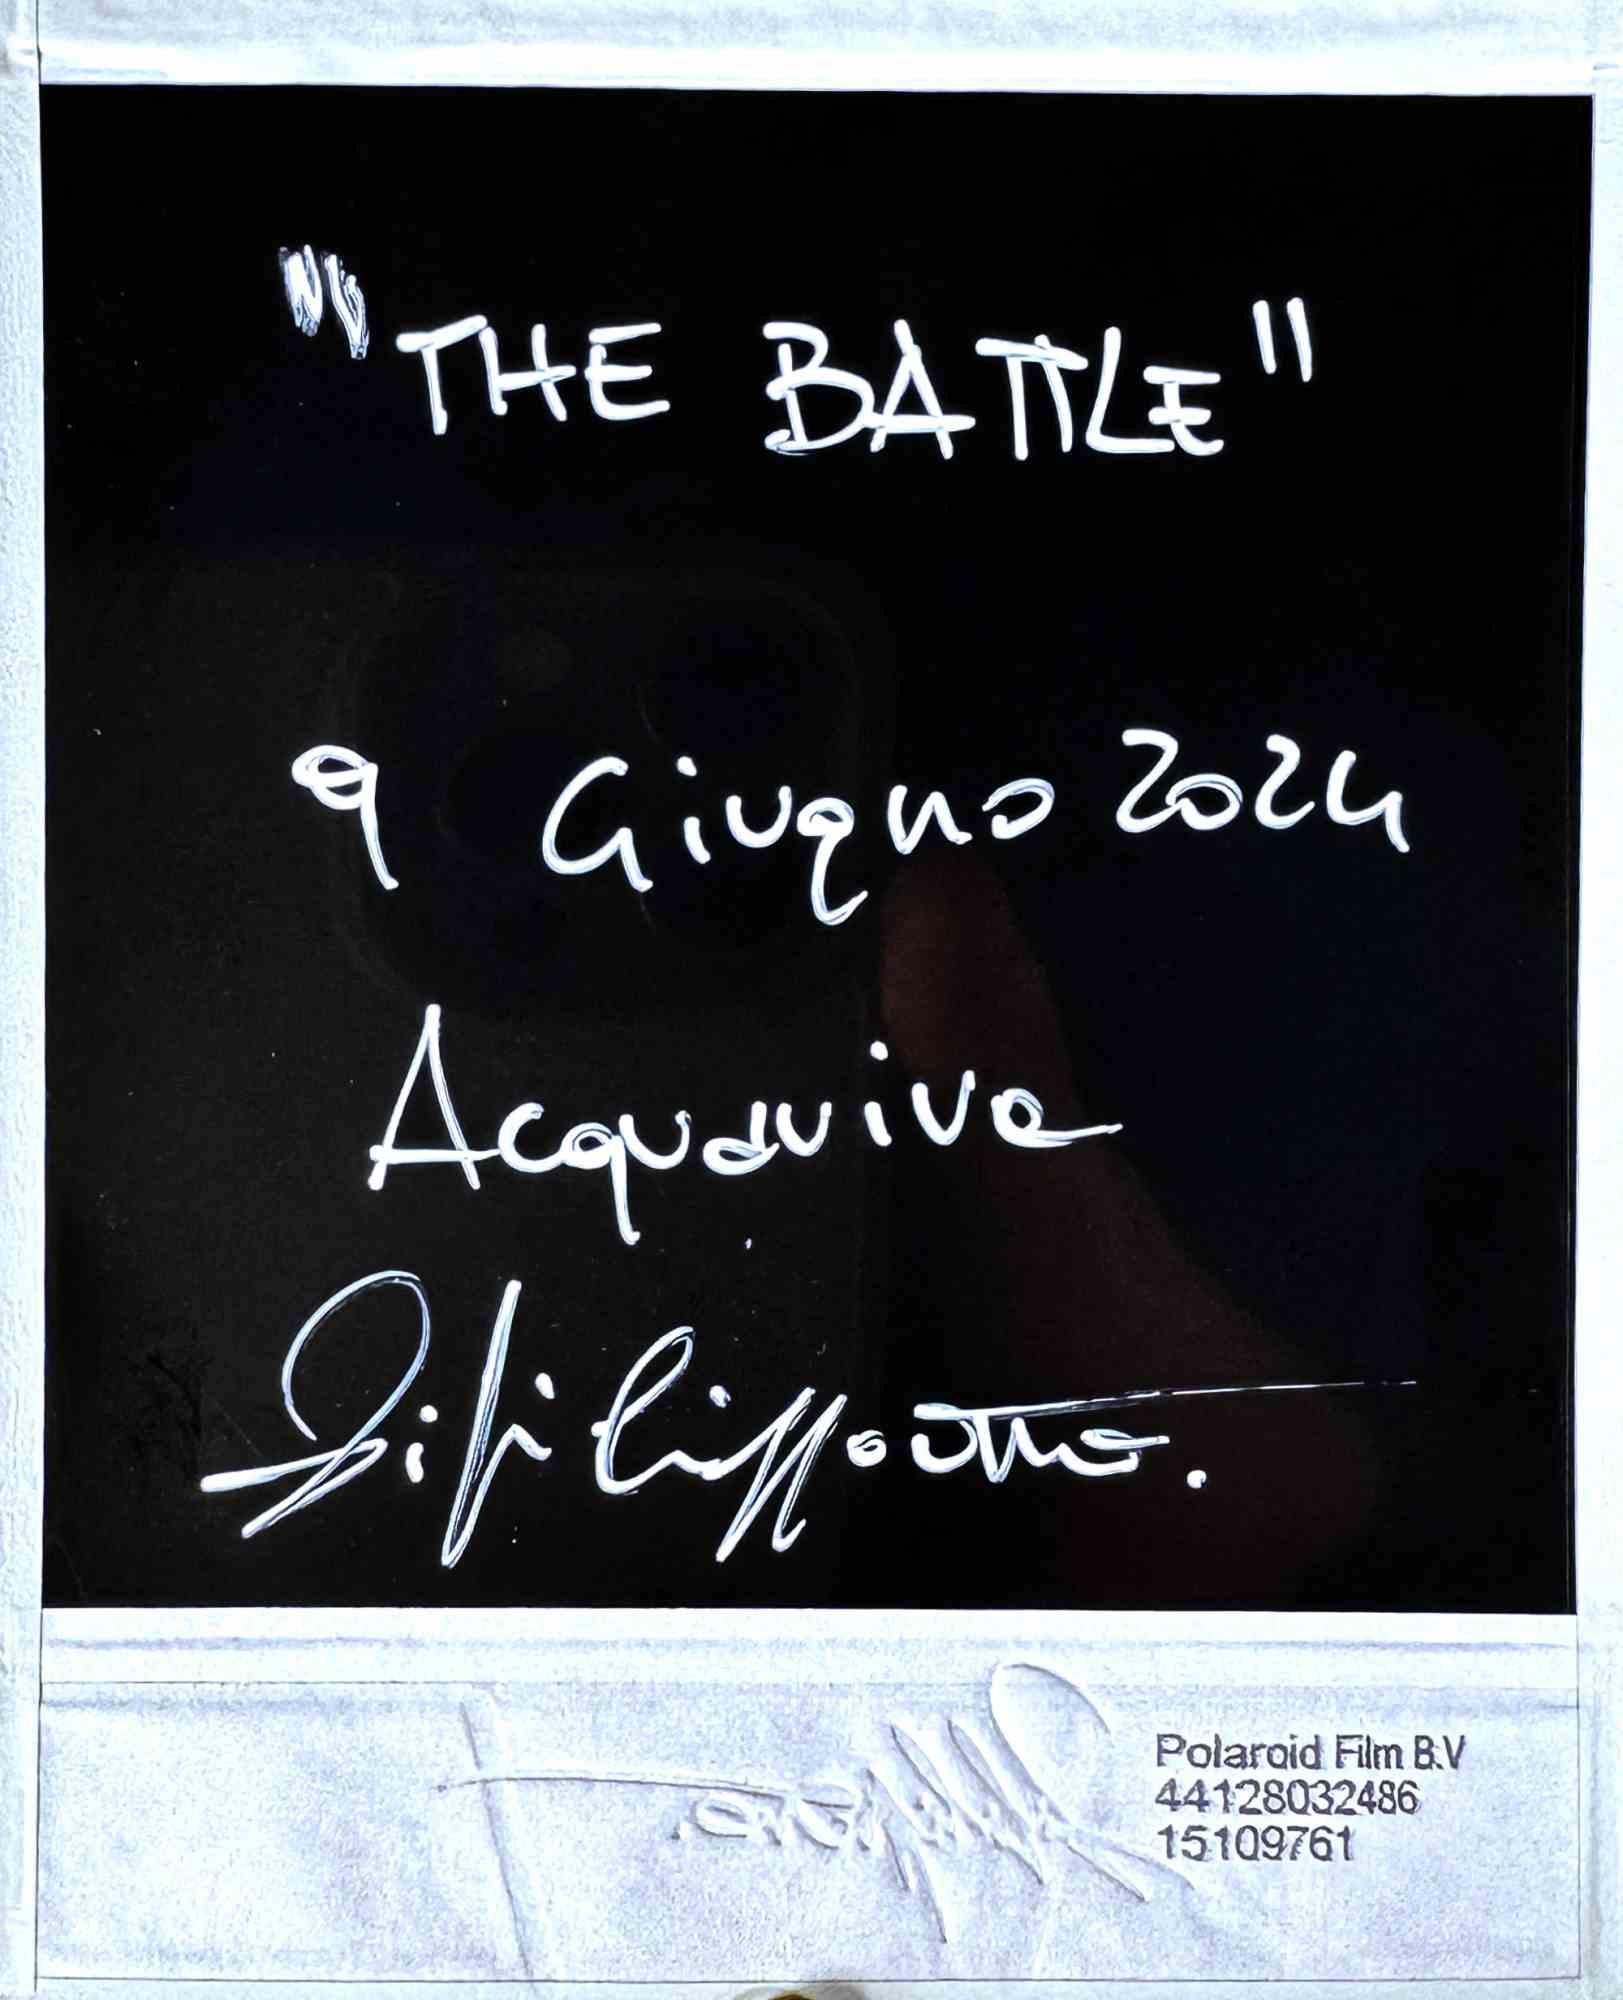 "THE BATTLE"
9 Giugno 2024
Acquaviva
Difilippo
Polaroid Film B.V
44128032486
15109761